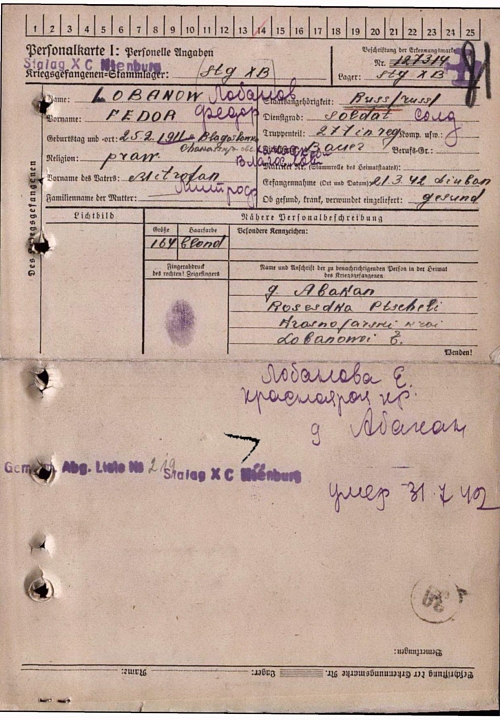 1 2 3 4 5 6 7 8 9 10 11 12 13 14 15 16 17 18 19 20 21 22 23 24 25
Personalkarte I: Personelle Angaben
Stalag X C Nienburg
Kriegsgefangenen-Stammlager: Stg XB
Beschriftung der Erkennungsmarke
Nr. 127314
Lager: Stg XB
81
Des Kriegsgefangenen
Name: LOBANOW Лобанов
Vorname: FEDOR Федор
Geburtstag und -ort: 25.2.1911
Religion: praw.
Vorname des Vaters: Mitrofan
Familienname der Mutter:
Staatsangehörigkeit: Russ/russ
Dienstgrad: Soldat солд
Truppenteil: 277 in reg Komp. usw.:
Bauer Berufs-Gr.:
Matrikel Nr. (Stammrolle des Heimatstaates):
Gefangennahme (Ort und Datum): 21.3.42 Liuban
Ob gesund, krank, verwundet eingeliefert: gesund
Lichtbild
Nähere Personalbeschreibung
Größe Haarfarbe Besondere Kennzeichen:
164 blond
Fingerabdruck
des rechten! Zeigefingers
Name und Anschrift der zu benachrichtigenden Person in der Heimat
des Kriegsgefangenen
g. Abakan
Krasnojarski Krai
Lobanowi E.
Wenden!
Лобанова Е.
г Абакан
Abg. Liste № 219 Stalag X C Nienburg
умер 31 7 42
Bemerkungen:
Beschriftung der Erkennungsmarke Nr. Lager: Name: